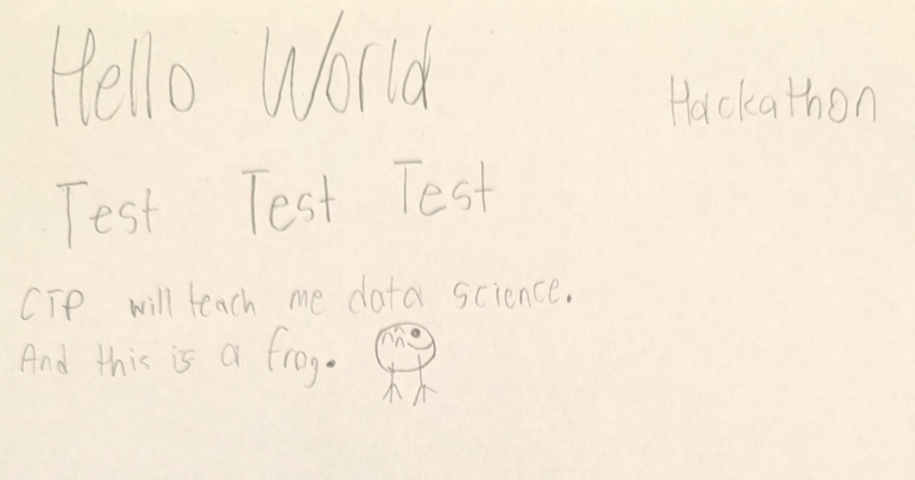 Hello World
Hackathon
Test Test Test
CTP will teach me data science.
And this is a frog.